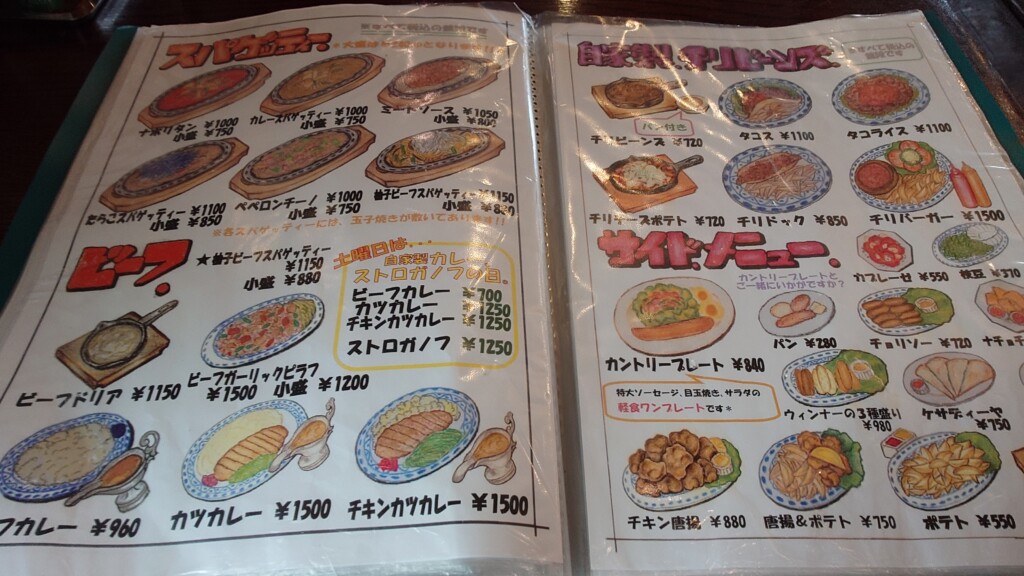 スパゲッティー
ナポリタン ¥1000
小盛 ¥750
カレースパゲッティー ¥1000
小盛 ¥750
ミートソース ¥1050
小盛 ¥800
たらこスパゲッティー ¥1100
小盛 ¥850
ペペロンチーノ ¥1000
小盛 ¥750
柚子ビーフスパゲッティー ¥1150
小盛
※各スパゲッティーには、玉子焼きが敷いてあります!!
ビーフ.
★柚子ビーフスパゲッティー
¥1150
小盛 ¥880
土曜日は...
自家製カレー
ストロガノフの日。
ビーフカレー ¥700
カツカレー ¥1250
チキンカツカレー ¥1250
ストロガノフ ¥1250
ビーフドリア ¥1150
ビーフガーリックピラフ
¥1500 小盛 ¥1200
フカレー ¥960
カツカレー ¥1500
チキンカツカレー ¥1500
自家製.チリビーンズ.
パン付き
チリビーンズ ¥720
タコス ¥1100
タコライス ¥1100
チリチーズポテト ¥720
チリドック ¥850
チリバーガー ¥1500
サイド.メニュー.
カントリープレートと
ご一緒にいかがですか?
カプレーゼ ¥550
枝豆 ¥370
カントリープレート ¥840
パン ¥280
チョリソー ¥720
ナチョチ
特大ソーセージ、目玉焼き、サラダの
軽食ワンプレートです*
ウィンナーの3種盛り
¥980
ケサディーヤ
¥750
チキン唐揚 ¥880
唐揚&ポテト ¥750
ポテト ¥550